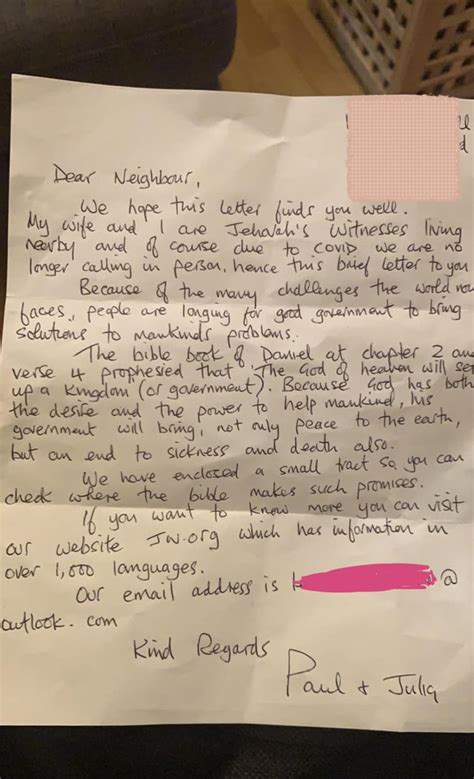 Dear Neighbour,
We hope this letter finds you well.
My wife and I are Jehovah's Witnesses living
nearby and of course due to covid we are no
longer calling in person, hence this brief letter to you
Because of the many challenges the world now
faces, people are longing for good government to bring
solutions to mankinds problems.
The bible book of Daniel at chapter 2 and
verse 4 prophesied that 'The God of heaven will set
up a Kingdom (or government). Because God has both
the desire and the power to help mankind, his
government will bring, not only peace to the earth,
but an end to sickness and death also.
We have enclosed a small tract so you can
check where the bible makes such promises.
If you want to know more you can visit
our website JW.org which has information in
over 1,000 languages.
Our email address is @
outlook.com
Kind Regards
Paul + Julia